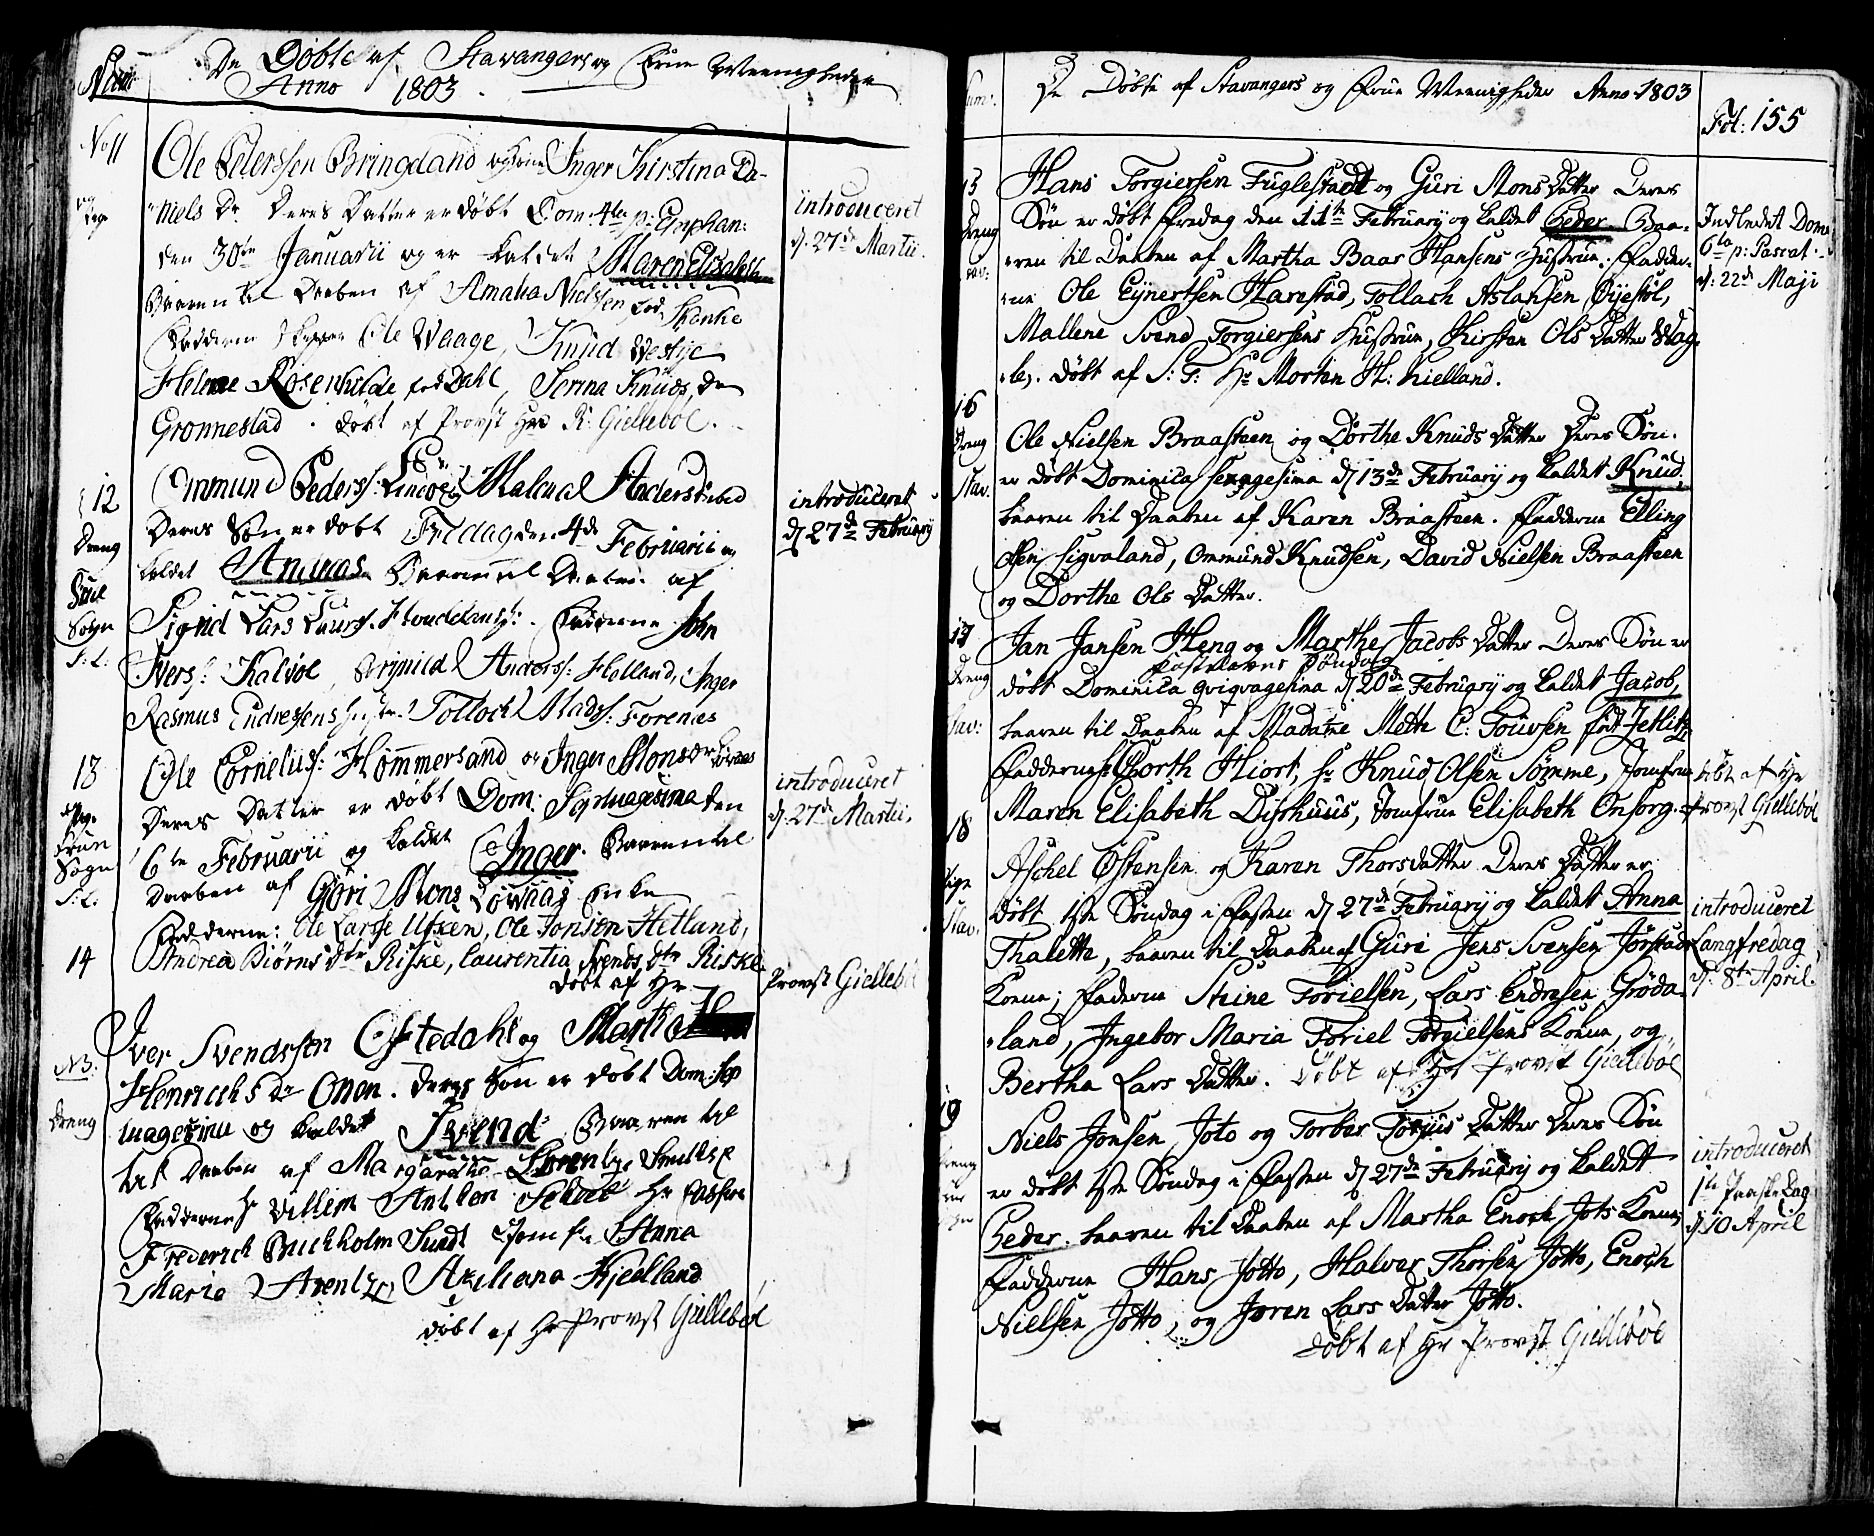 Num:
De Døbte af Stavangers og Frue Meenigheder
Anno 1803.
No 11
Ole Pederssen Bringeland og Inger Kirstina Da-
niels Dr Deres Datter er døbt Dom: 4ta p: Epiphan:
den 30te Januarii og er kaldet Maren Elisabeth
Baaren til Daaben af Amalia Nielssen fød Schenke
Fadderne Ole Waage, Knud Westye
Helene Rosenkilde fød Dahl, Serina Knuds Dr
Gronnestad. Døbt af Provst Hr R: Giellebøl.
introduceret
d. 27de Martii.
12
Dreng
Frue
Sogn
S: L:
Ommund Pederss: og Malena Anders
Deres Søn er døbt Fredag den 4de Februarii og
kaldet Andreas Baaren til Daaben af
Sigrid Lars fadderne John
Ivers: Kalvøe, Anderss: Helland, Inger
Rasmus Endressens Tollock Madss: Forenæs
introduceret
d 27de Februarij
13
Pige
Frue
Sogn
S: L:
Ole Corneliuss: Hommersand og Inger Mons dr
Deres Datter er døbt Dom: Septuagesima den
6te Februarii og kaldet Inger. Baaren til
Daaben af Gøri Mons Enke
Fadderne: Ole Larsse Utken, Ole Jonsen Hetland,
Andrea Biørns dtr Riske, Laurentia Svends dtr Riske
Døbt af Hr Provst Giellebøl
introduceret
d. 27de Martii.
14
NB:
Dreng
Iver Svendssen Oftedahl og Martha
Henrichs dr Onen. Deres Søn er døbt Dom: Sep
tuagesima og kaldet Svend Baaren til
til Daaben af Margarethe
Fadderne Hr Villem
Frederich Buchholm Sundt Jomfr: Anna
Maria Arentz, Axeliana Kjelland
døbt af Hr Provst Giellebøl
De Døbte af Stavangers og Frue Meenigheder Anno 1803
Fol: 155
15
Dreng
Stav:
Hans Torgiersen Fuglestadt og Guri Mons Datter Deres
Søn er døbt Fredag den 11te Februarij og kaldet Peder Baa-
ren til Daaben af Martha Baar Hansens Hustrue. Fadder-
ne Ole Eynertsen Harestad, Tollach Aslaksen Øyestøl,
Mallene Svend Torgiersens Hustrue, Kirsten Ols Datter Wag
le. døbt af S: T: Hr Morten H: Kielland.
Indledet Dom:
6ta p: Pascat.
d: 22de Maji
16
Dreng
Stav.
Ole Nielsen Braasteen og Dorthe Knuds Datter Deres Søn
er døbt Dominica sexagesima d 13de Februarij og kaldet Knud,
baaren til Daaben af Karen Braasteen. Fadderne Elling
Olsen Sigvaland, Ommund Knudsen, David Nielsen Braasteen
og Dorthe Ols Datter.
17
Dreng
Stav:
Jan Jansen Heng og Marthe Jacobs Datter Deres Søn er
Fastelavns Søndag
døbt Dominica qviqvagesima d 20de Februarij og kaldet Jacob,
baaren til Daaben af Madame Meth C: Touvsen født Jetlitz
Fadderne Hr Gorth Hiort, Hr Knud Olsen Sømme, Jomfrue
Maren Elisabeth Disthuus, Jomfrue Elisabeth Onsorg.
døbt af Hr
Provst Giellebøl
18
Pige
Stav.
Aschel Østensen og Karen Thorsdatter Deres Datter er
døbt 1ste Søndag i Fasten d 27de Februarij og kaldet Anna
Thalette, baaren til Daaben af Guri Jens Svensen Jørstads
Kone; Fadderne Stine Torielsen, Lars Endresen Grøda-
land, Ingebor Maria Toriel Torgielsens Kone, og
Bertha Lars Datter. Døbt af Hr Provst Giellebøl
introduceret
Langfredag
d. 8te April.
19
Dreng
Niels Jonsen Joto og Torber Torjus Datter Deres Søn
er døbt 1ste Søndag i Fasten d 27de Februarij og kaldet
Peder. baaren til Daaben af Martha Enoch Jots Kone,
Fadderne Hans Jotto, Halvor Thorsen Jotto, Enoch
Nielsen Jotto, og Joren Lars Datter Jotto.
Døbt af Hr Provst Giellebøl
introduceret
1te Paaske Dag
d 10 April